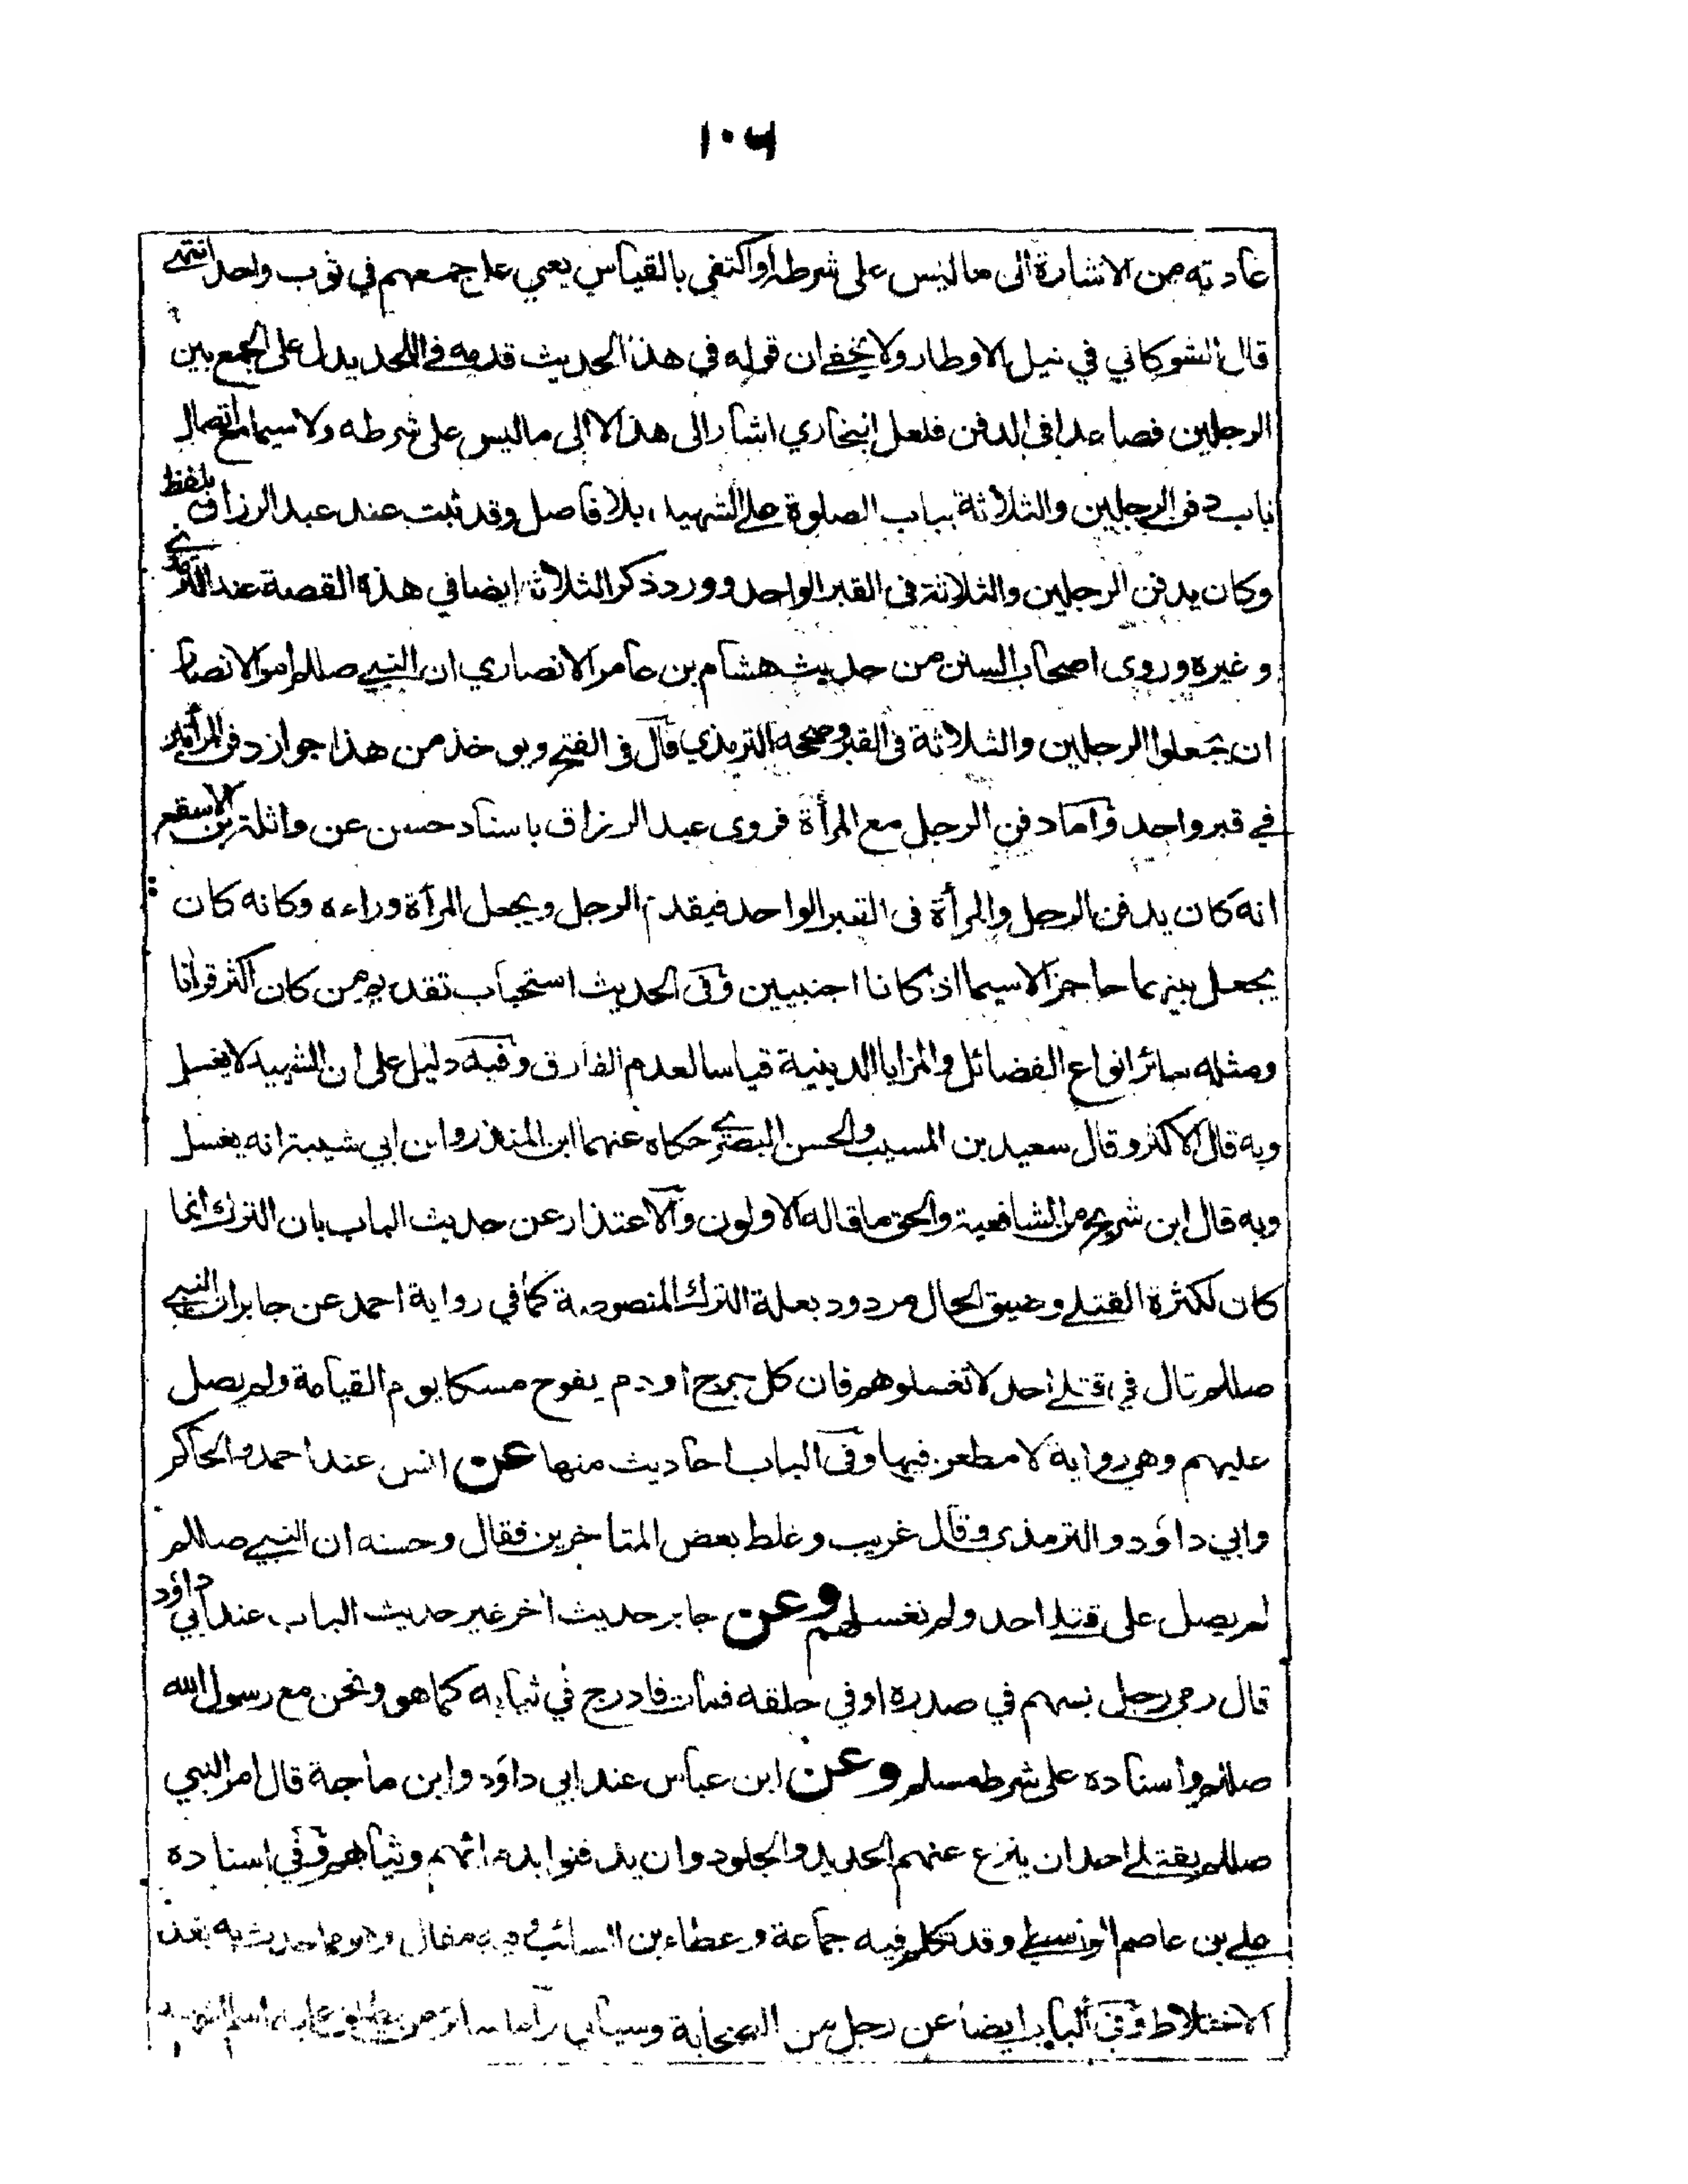 ۱۰۶
عادته من الاشارة الى ما ليس على شرطه او اكتفى بالقياس يعني على جمعهم في ثوب واحد انتهى
قال الشوكاني في نيل الاوطار ولا يخفى ان قوله في هذا الحديث قدمه في اللحد يدل على الجمع بين
الرجلين فصاعدا في الدفن فلعل البخاري اشار الى هذا لا الى ما ليس على شرطه ولا سيما مع اتصال
باب دفن الرجلين والثلاثة بباب الصلوة على الشهيد بلا فاصل وقد ثبت عند عبد الرزاق بلفظ
وكان يدفن الرجلين والثلاثة في القبر الواحد وورد ذكر الثلاثة ايضا في هذه القصة عند الترمذي
وغيره وروى اصحاب السنن من حديث هشام بن عامر الانصاري ان النبي صللم امر الانصار
ان يجعلوا الرجلين والثلاثة في القبر وصححه الترمذي قال في الفتح ويوخذ من هذا جواز دفن المرأتين
في قبر واحد واما دفن الرجل مع المرأة فروى عبد الرزاق باسناد حسن عن واثلة بن الاسقع
انه كان يدفن الرجل والمرأة في القبر الواحد فيقدم الرجل ويجعل المرأة وراءه وكانه كان
يجعل بينهما حاجزا لاسيما اذا كانا اجنبيين وفي الحديث استحباب تقديم من كان اكثر قرانا
ومثله سائر انواع الفضائل والمزايا الدينية قياسا لعدم الفارق وفيه دليل على ان الشهيد لا يغسل
وبه قال الاكثر وقال سعيد بن المسيب والحسن البصري حكاه عنهما ابن المنذر وابن ابي شيبة انه يغسل
وبه قال ابن شريح من الشافعية والحق ما قاله الاولون والاعتذار عن حديث الباب بان الترك انما
كان لكثرة القتلى وضيق الحال مردود بعلة الترك المنصوصة كما في رواية احمد عن جابر ان النبي
صللم قال في قتلى احد لا تغسلوهم فان كل جرح او دم يفوح مسكا يوم القيامة ولم يصل
عليهم وهي رواية لا مطعن فيها وفي الباب احاديث منها عن انس عند احمد والحاكم
وابي داؤد والترمذي وقال غريب وغلط بعض المتاخرين فقال وحسنه ان النبي صللم
لم يصل على قتلى احد ولم نغسلهم وعن جابر حديث اخر غير حديث الباب عند ابي داؤد
قال رمى رجل بسهم في صدره او في حلقه فمات فادرج في ثيابه كما هو ونحن مع رسول الله
صللم واسناده على شرط مسلم وعن ابن عباس عند ابي داؤد وابن ماجة قال امر النبي
صللم بقتلى احد ان ينزع عنهم الحديد والجلود وان يدفنوا بدمائهم وثيابهم وفي اسناده
على بن عاصم الواسطي وقد تكلم فيه جماعة وعطاء بن السائب وفيه مقال وهو مما حدث به بعد
الاختلاط وفي الباب ايضا عن رجل من الصحابة وسياتي واما سائر من يطلق عليه اسم الشهيد